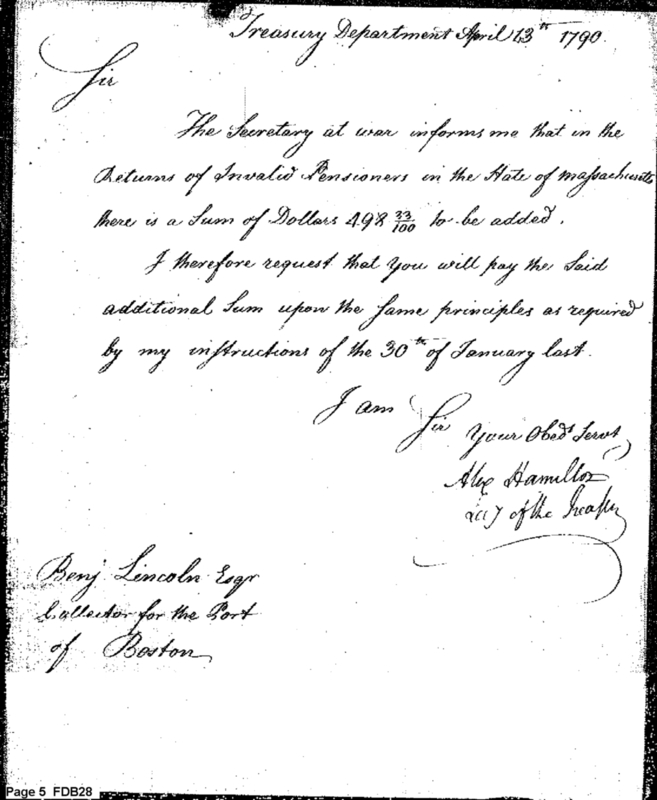 Treasury Department April 13th 1790.
Sir
The Secretary at war informs me that in the
Returns of Invalid Pensioners in the State of Massachusetts
there is a Sum of Dollars 498 33/100 to be added.
I therefore request that you will pay the said
additional Sum upon the same principles as required
by my instructions of the 30th of January last.
I am Sir
Your Obedt Servt
Alex Hamilton
Secy of the Treasury
Benj Lincoln Esqr
Collector for the Port
of Boston
Page 5 FDB28